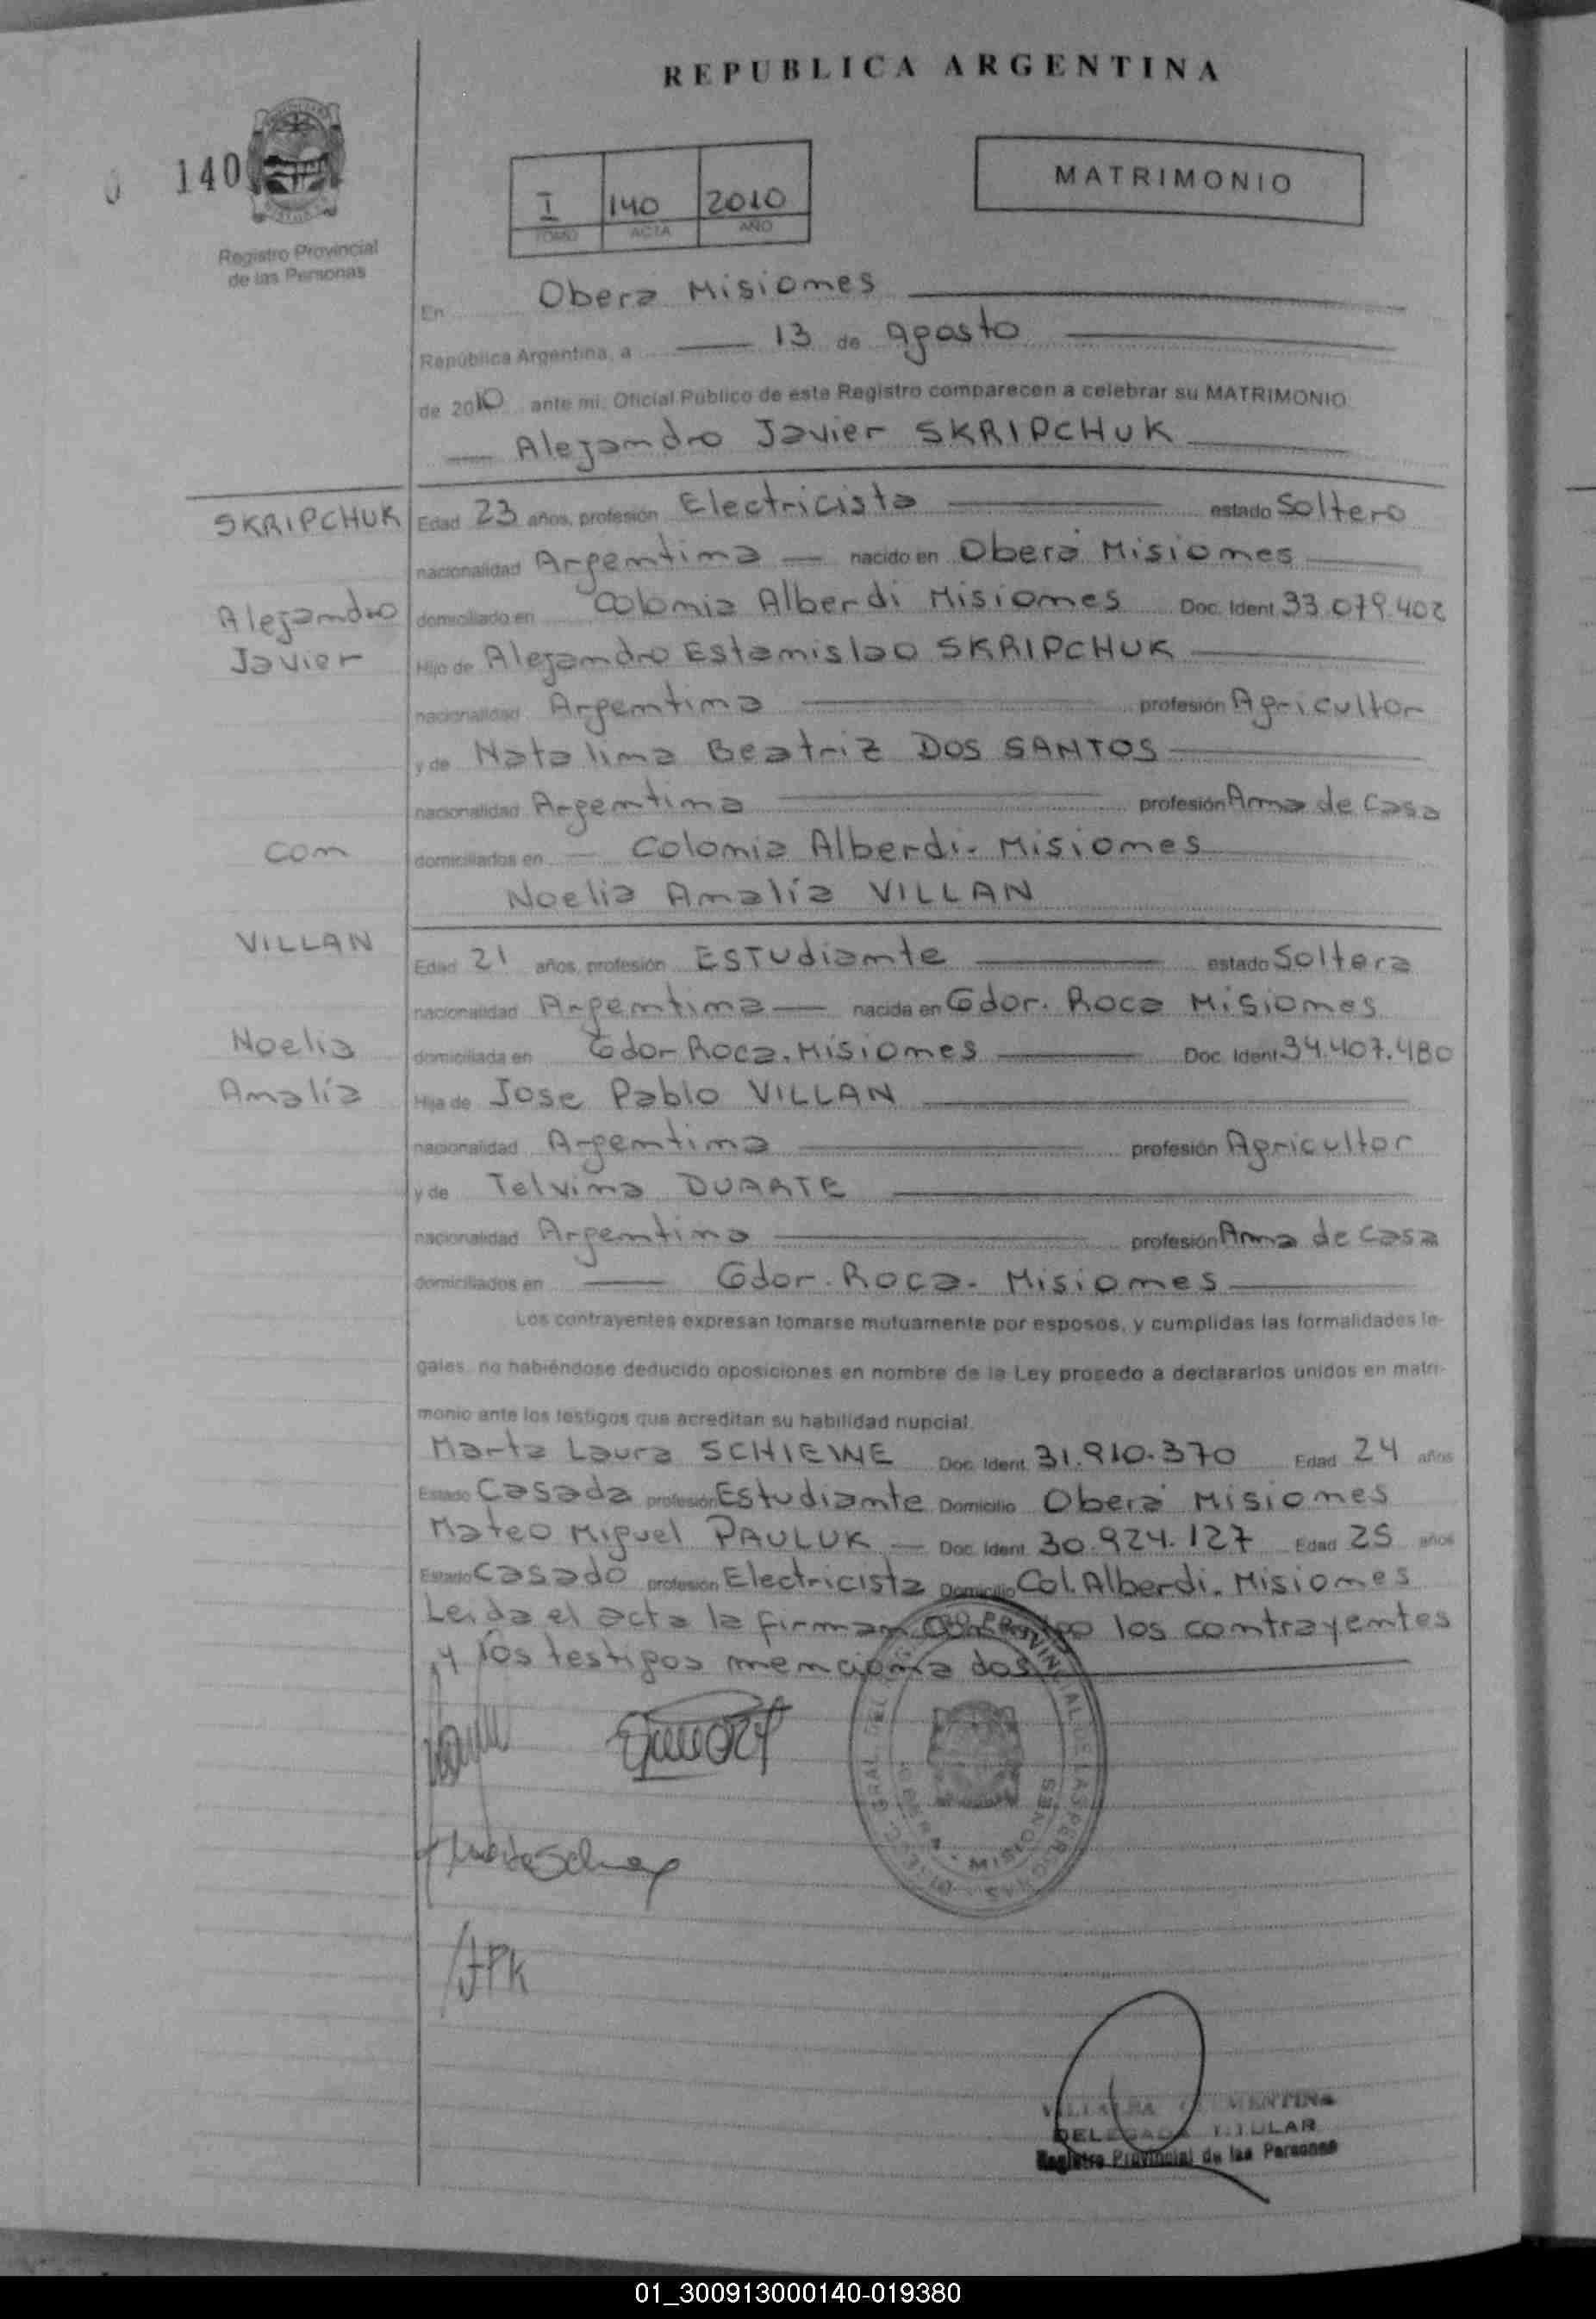 REPUBLICA ARGENTINA
140
Registro Provincial
de las Personas
I 140 2010
TOMO ACTA AÑO
MATRIMONIO
En Oberá Misiones
República Argentina, a 13 de Agosto
de 2010 ante mi, Oficial Público de este Registro comparecen a celebrar su MATRIMONIO
Alejandro Javier SKRIPCHUK
SKRIPCHUK
Edad 23 años, profesión Electricista estado Soltero
nacionalidad Argentina nacido en Oberá Misiones
Alejandro
domiciliado en Colonia Alberdi Misiones Doc. Ident. 33.079.402
Javier
Hijo de Alejandro Estanislao SKRIPCHUK
nacionalidad Argentina profesión Agricultor
y de Natalina Beatriz DOS SANTOS
nacionalidad Argentina profesión Ama de Casa
con
domiciliados en Colonia Alberdi - Misiones
Noelia Amalia VILLAN
VILLAN
Edad 21 años, profesión ESTUdiante estado Soltera
nacionalidad Argentina nacida en Gdor. Roca Misiones
Noelia
domiciliada en Gdor Roca. Misiones Doc. Ident. 34.407.480
Amalia
Hija de Jose Pablo VILLAN
nacionalidad Argentina profesión Agricultor
y de Telvina DUARTE
nacionalidad Argentina profesión Ama de Casa
domiciliados en Gdor. Roca - Misiones
Los contrayentes expresan tomarse mutuamente por esposos, y cumplidas las formalidades le-
gales, no habiéndose deducido oposiciones en nombre de la Ley procedo a declararlos unidos en matri-
monio ante los testigos que acreditan su habilidad nupcial.
Marta Laura SCHIEWE Doc. Ident. 31.910.370 Edad 24 años
Estado Casada profesión Estudiante Domicilio Oberá Misiones
Mateo Miguel PAULUK Doc. Ident. 30.924.127 Edad 25 años
Estado Casado profesión Electricista Domicilio Col. Alberdi. Misiones
Leida el acta la firman conmigo los contrayentes
y los testigos mencionados
MISIONES
VILLALBA CLEMENTINA
DELEGADA TITULAR
Registro Provincial de las Personas
01_300913000140-019380